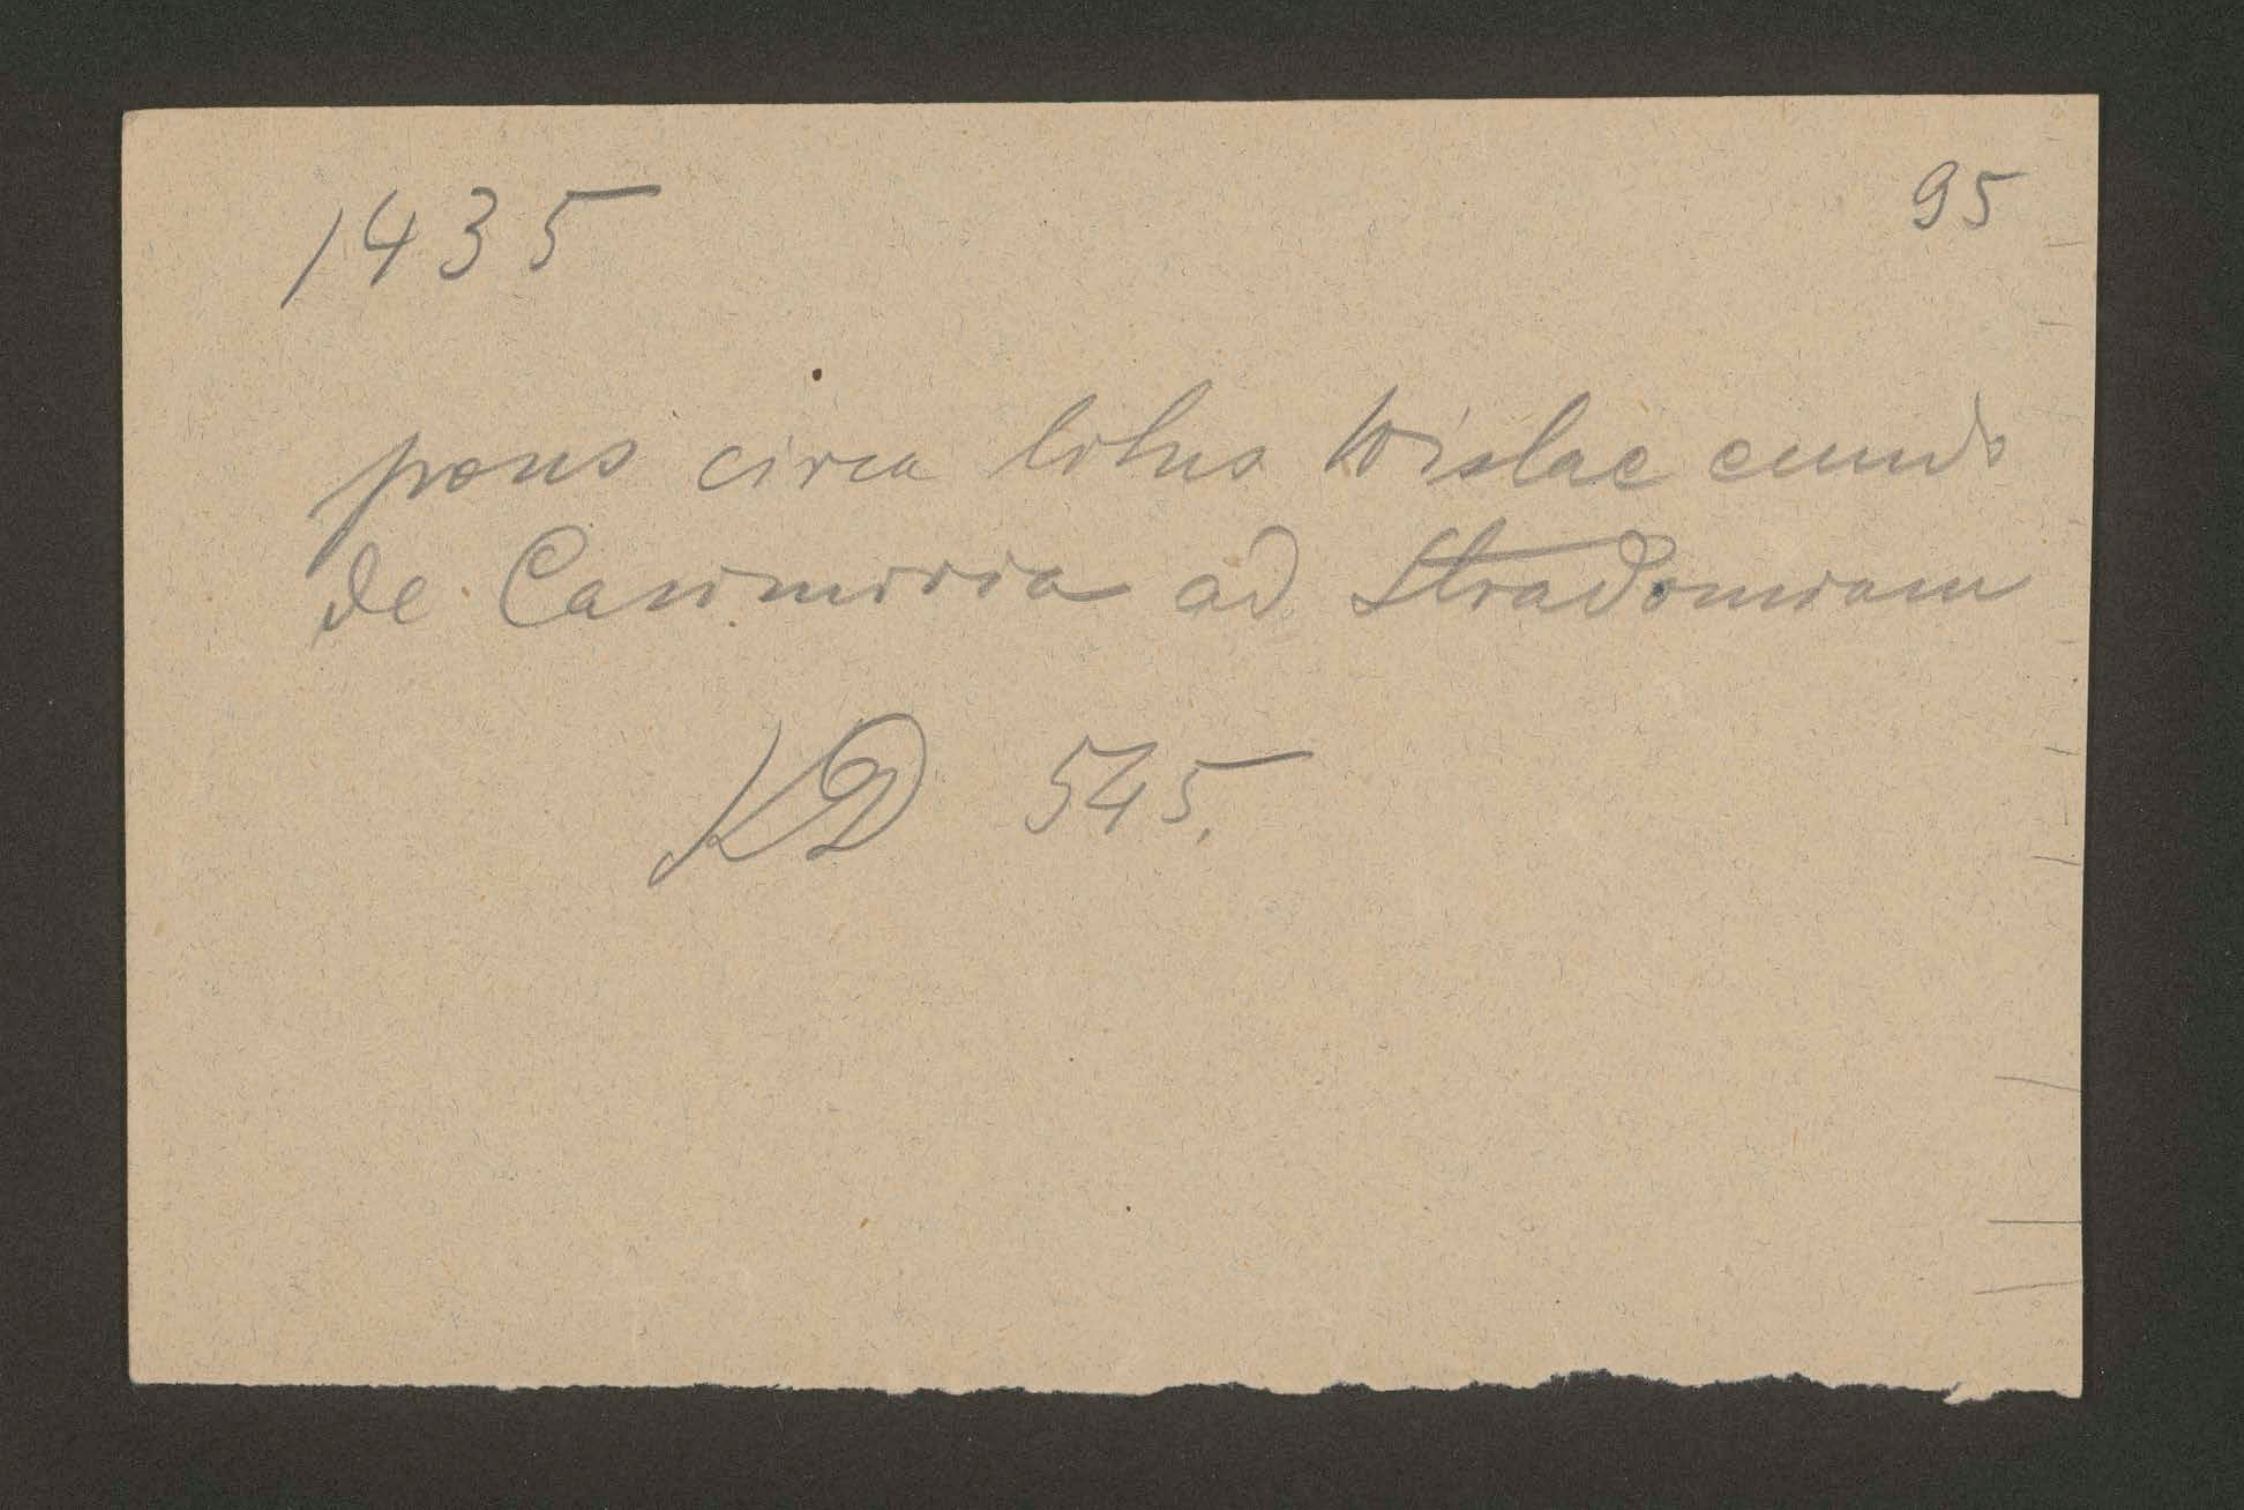 1435 95
pons circa litus Wislae eundo
de Casimiria ad Stradomiam
KD 545.